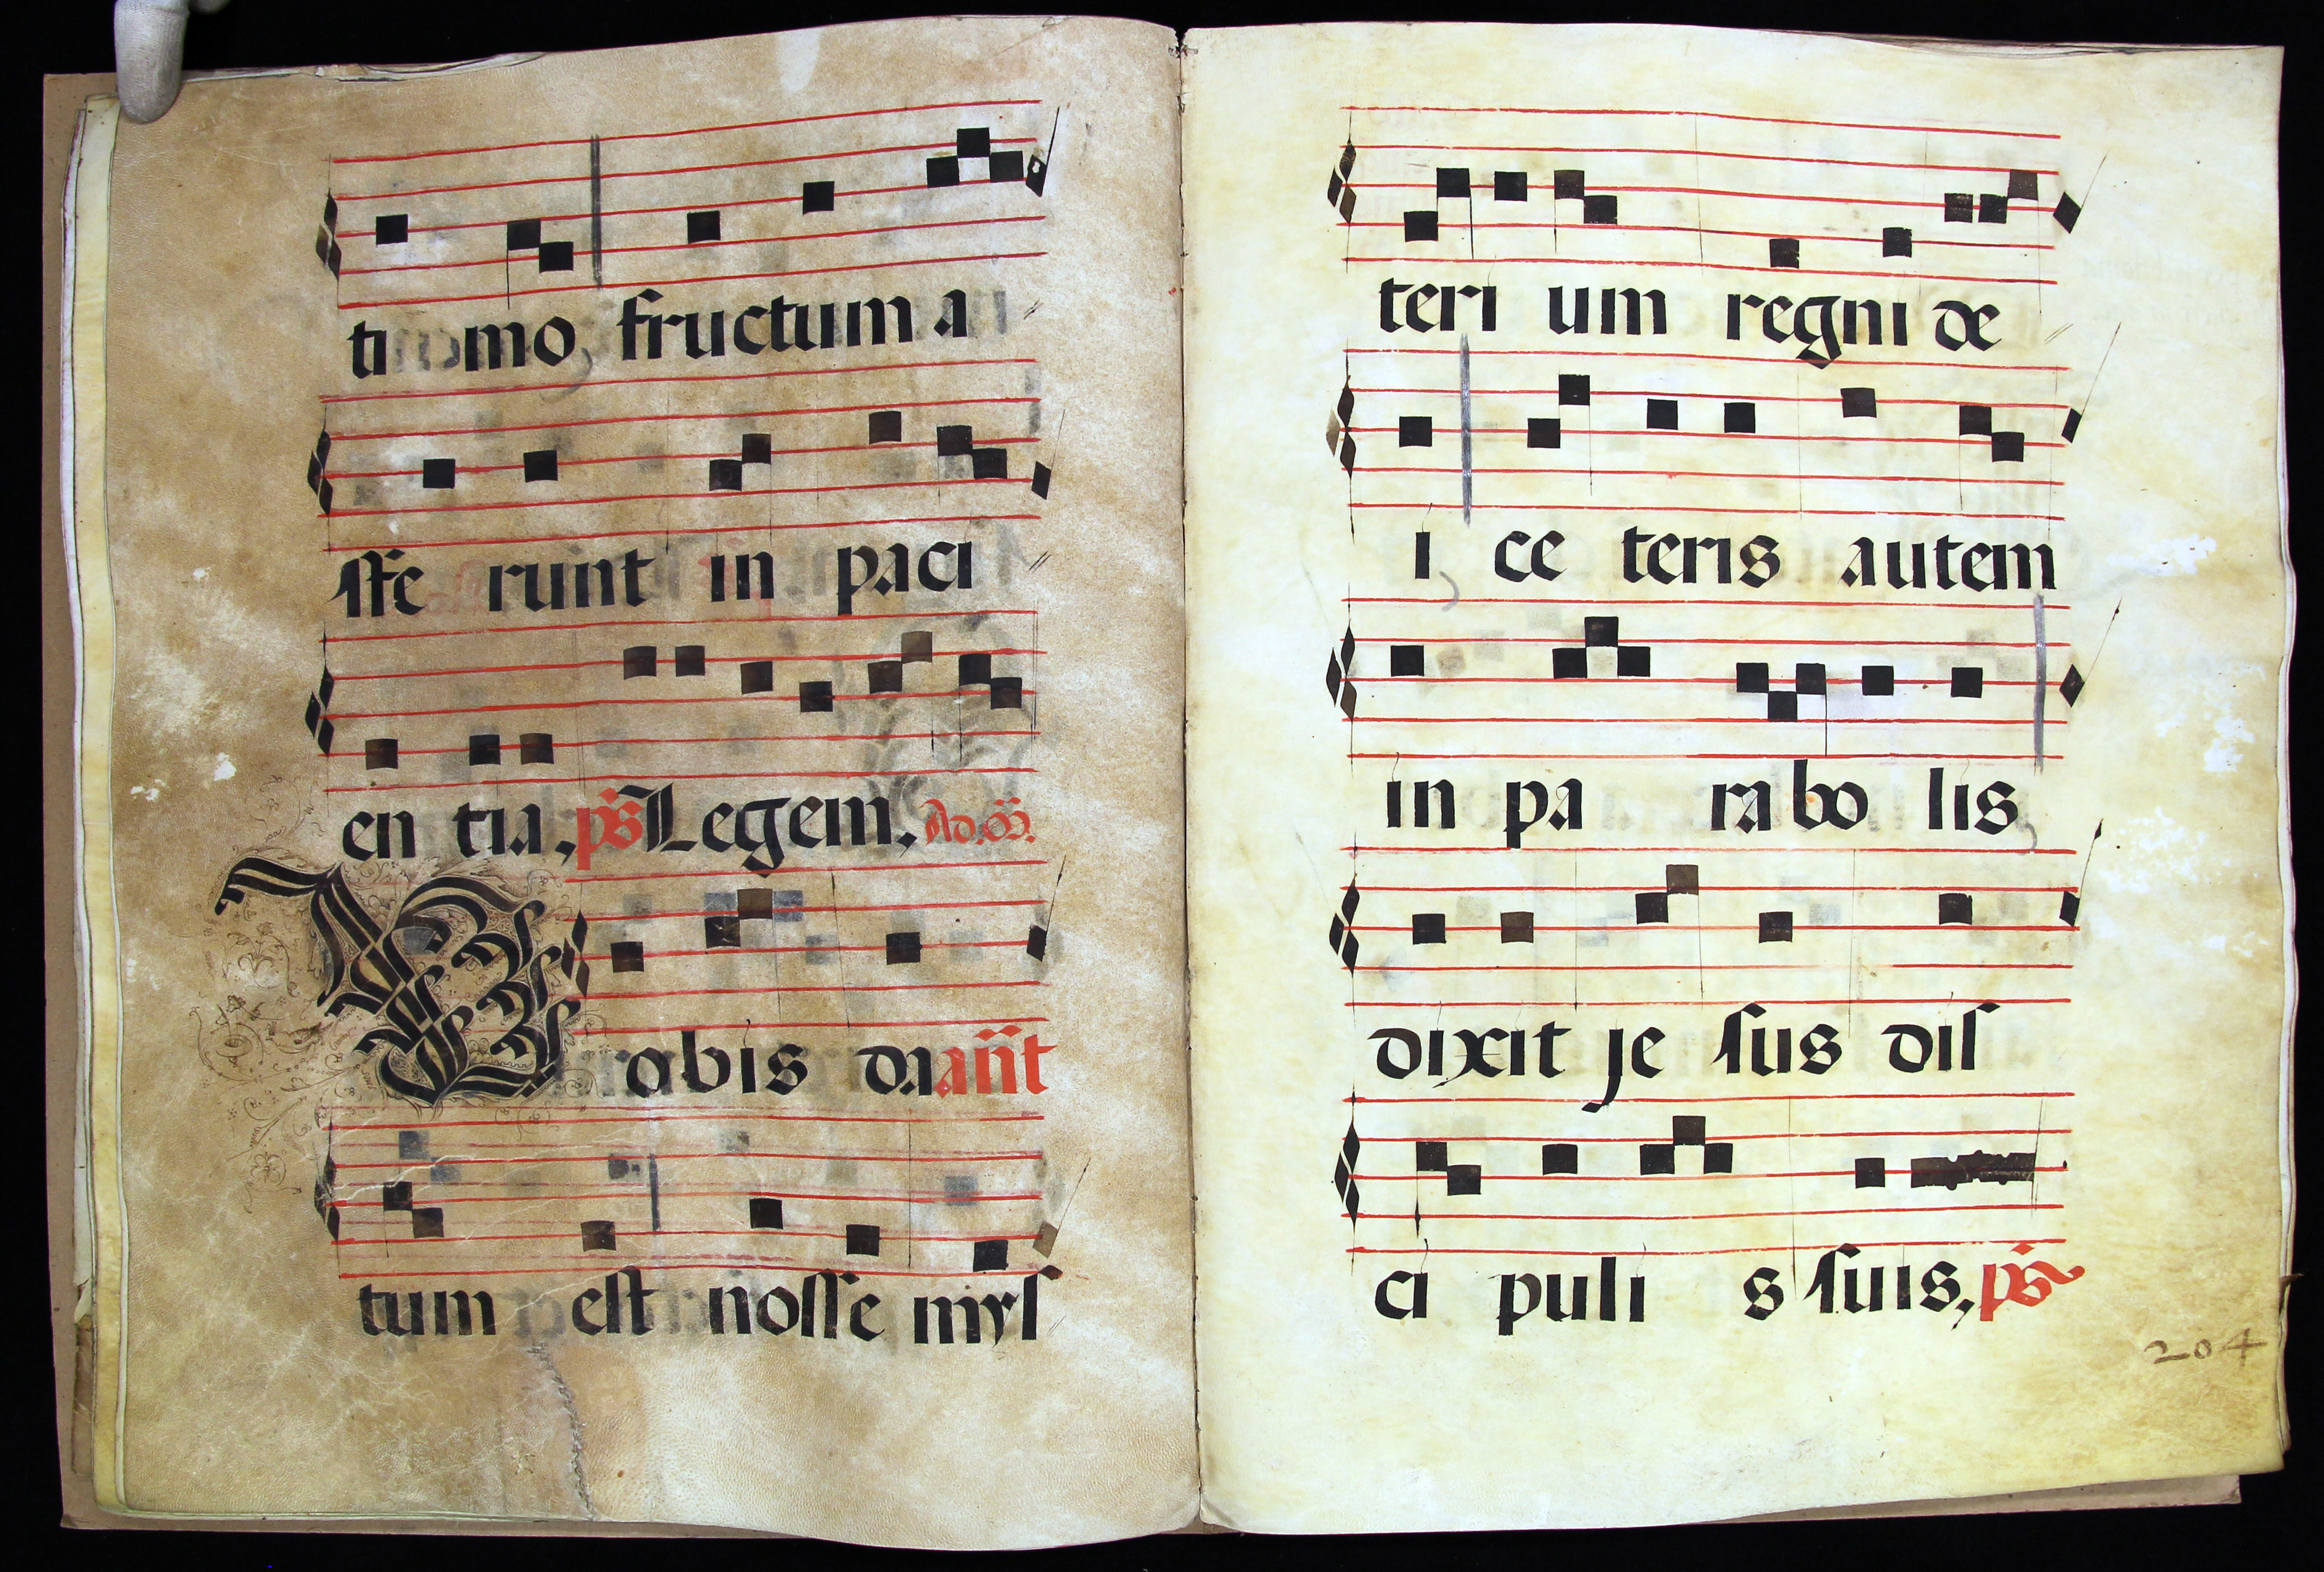 ti mo, fructum a
ffe runt in paci
en tia, ps Legem, Ad.
Vobis da ant
tum est nosse mys
teri um regni de
i, ce teris autem
in pa ra bo lis
dixit je sus dis
ci puli s suis, ps
204